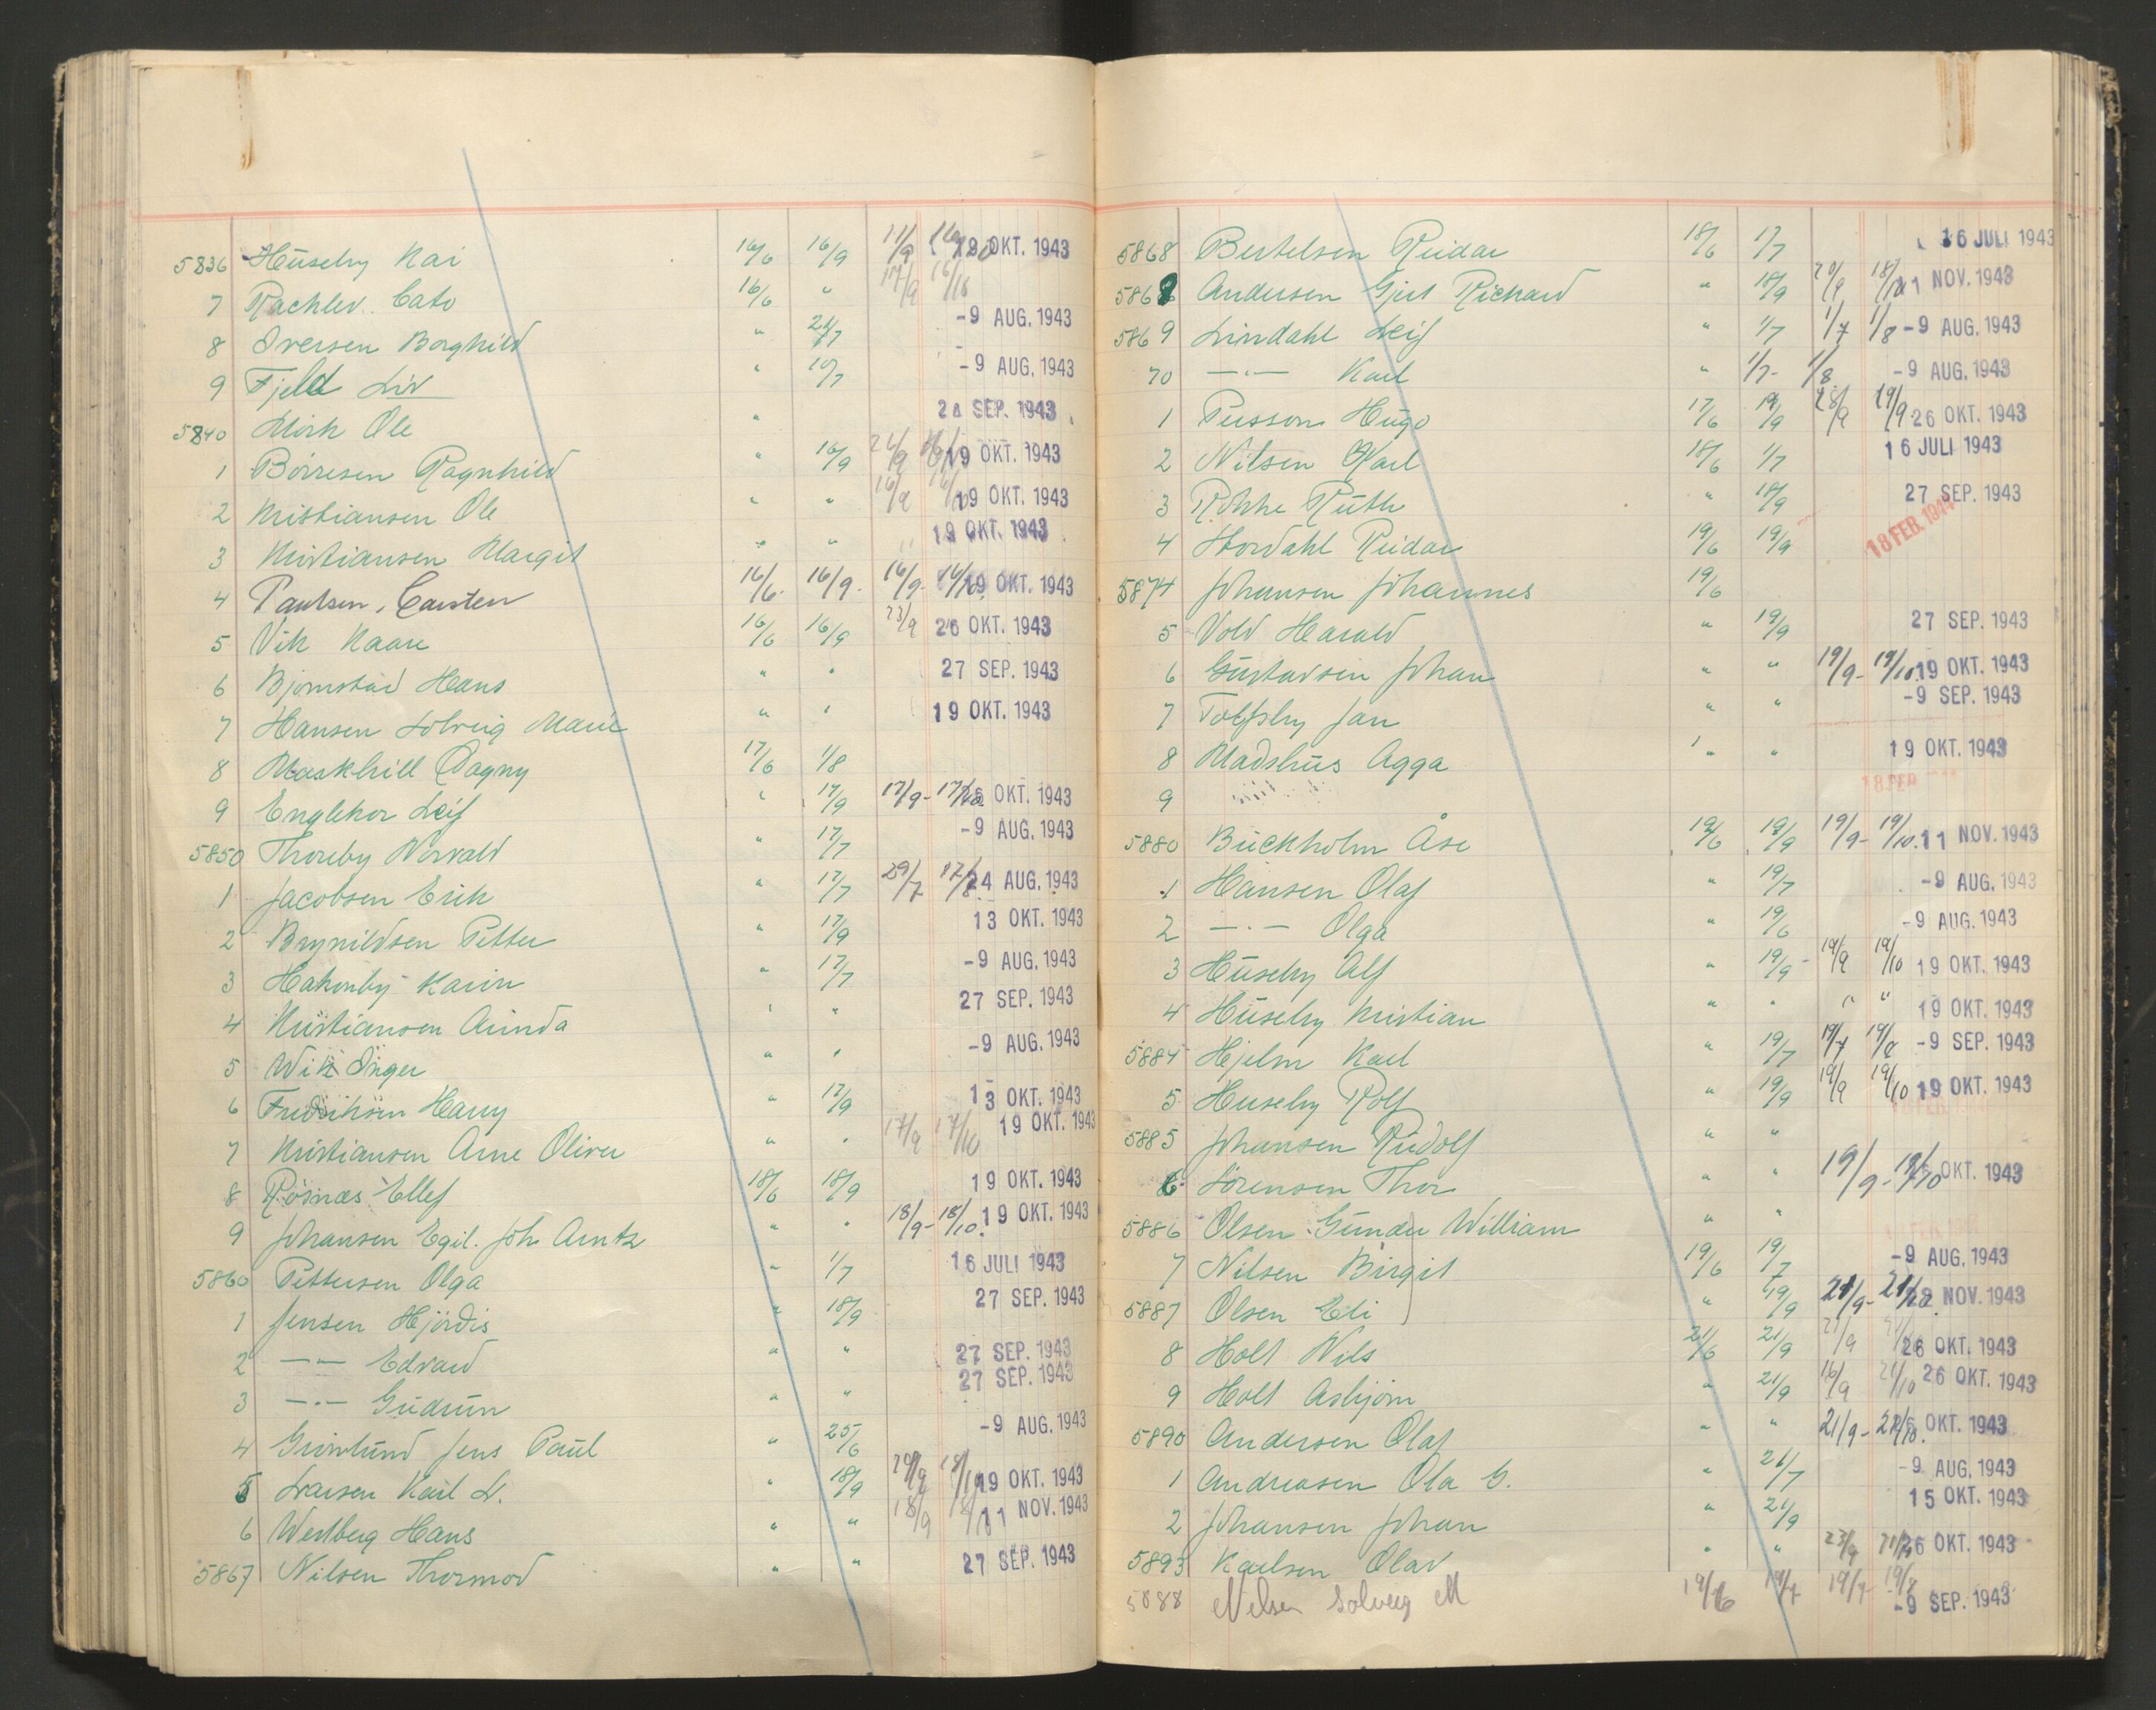 5836 Huseby Kai 16/6 16/9 11/9 19 OKT. 1943
7 Rachlev Cato 16/6 " 17/9 16/10
8 Iversen Borghild " 24/7 -9 AUG. 1943
9 Fjeld Liv " 10/7 -9 AUG. 1943
5840 Mörk Ole " SEP. 1943
1 Börresen Ragnhild " 16/9 19 OKT. 1943
2 Kristiansen Ole " " 16/9 16/10 19 OKT. 1943
3 Kristiansen Margit " " " 19 OKT. 1943
4 Paulsen, Carsten 16/6. 16/9. 16/9- 16/10. 19 OKT. 1943
5 Vik Kaare 16/6 16/9 23/9 26 OKT. 1943
6 Bjørnstad Hans " " 27 SEP. 1943
7 Hansen Solveig Marie " " 19 OKT. 1943
8 Maskhill Dagny 17/6 1/8
9 Englehor Leif " 17/9 17/9- 17/10. 26 OKT. 1943
5850 Thoreby Norvald " 17/7 -9 AUG. 1943
1 Jacobsen Erik " 17/7 29/7 17/8 24 AUG. 1943
2 Brynildsen Petter " 17/9 13 OKT. 1943
3 Hakonby Karin " 17/7 -9 AUG. 1943
4 Kristiansen Arinda " " 27 SEP. 1943
5 Wik Inger " " -9 AUG. 1943
6 Fredriksen Harry " 17/9 13 OKT. 1943
7 Kristiansen Arne Oliver " " 17/9 17/10 19 OKT. 1943
8 Rösnæs Ellef 18/6 18/9 19 OKT. 1943
9 Johansen Egil. Joh Arntz " " 18/9- 18/10. 19 OKT. 1943
5860 Pettersen Olga " 1/7 16 JULI 1943
1 Jensen Hjördis " 18/9 27 SEP. 1943
2 —"— Edvard " " 27 SEP. 1943
3 —"— Gudrun " " 27 SEP. 1943
4 Grönlund Jens Paul " 25/6 -9 AUG. 1943
5 Larsen Karl L. " 18/9 18/10 19 OKT. 1943
6 Westberg Hans " " 18/9 18/10 11 NOV. 1943
5867 Nilsen Thormod " " 27 SEP. 1943
5868 Bertelsen Reidar 18/6 1/7 16 JULI 1943
5868 Andersen Gjert Richard " 18/9 20/9 18/10 11 NOV. 1943
5869 Lindahl Leif " 1/7 1/7 1/8 -9 AUG. 1943
70 —"— Karl " 1/7- 1/8 -9 AUG. 1943
1 Persson Hugo 17/6 19/9 28/9 26 OKT. 1943
2 Nilsen Karl 18/6 1/7 16 JULI 1943
3 Rokke Ruth " 18/9 27 SEP. 1943
4 Hordahl Reidar 19/6 19/9 18 FEB. 1944
5874 Johansen Johannes 19/6
5 Vold Harald " 19/9 27 SEP. 1943
6 Gustavsen Johan " " 19/9- 19/10. 19 OKT. 1943
7 Toffsby Jan " " -9 SEP. 1943
8 Madshus Agga " " 19 OKT. 1943
9 18 FEB
5880 Buckholm Åse 19/6 19/9 19/9- 19/10. 11 NOV. 1943
1 Hansen Olaf " 19/7 -9 AUG. 1943
2 —"— Olga " 19/6 -9 AUG. 1943
3 Huseby Alf " 19/9- 19/9 19/10 19 OKT. 1943
4 Huseby Kristian " " " " 19 OKT. 1943
5884 Hjelm Karl " 19/7 19/7 19/8 -9 SEP. 1943
5 Huseby Rolf " 19/9 19/9 19/10 19 OKT. 1943
5885 Johansen Rudolf " "
6 Sörensen Thor " " 19/9- 19/10 OKT. 1943
5886 Olsen Gunder William " "
7 Nilsen Birgit 19/6 19/7 -9 AUG. 1943
5887 Olsen Edi " 19/9 21/9- 21/10. NOV. 1943
8 Holt Nils 21/6 21/9 21/9 26 OKT. 1943
9 Holt Asbjørn " 21/9 16/9 21/10 26 OKT. 1943
5890 Andersen Olaf " " 21/9- 21/10. 26 OKT. 1943
1 Andreasen Ola G. " 21/7 -9 AUG. 1943
2 Johansen Johan " 21/9 15 OKT. 1943
5893 Karlsen Olav " " 23/9 21/10 26 OKT. 1943
5888 Nilsen Solveig M 19/6 19/7 19/7- 19/8 -9 SEP. 1943